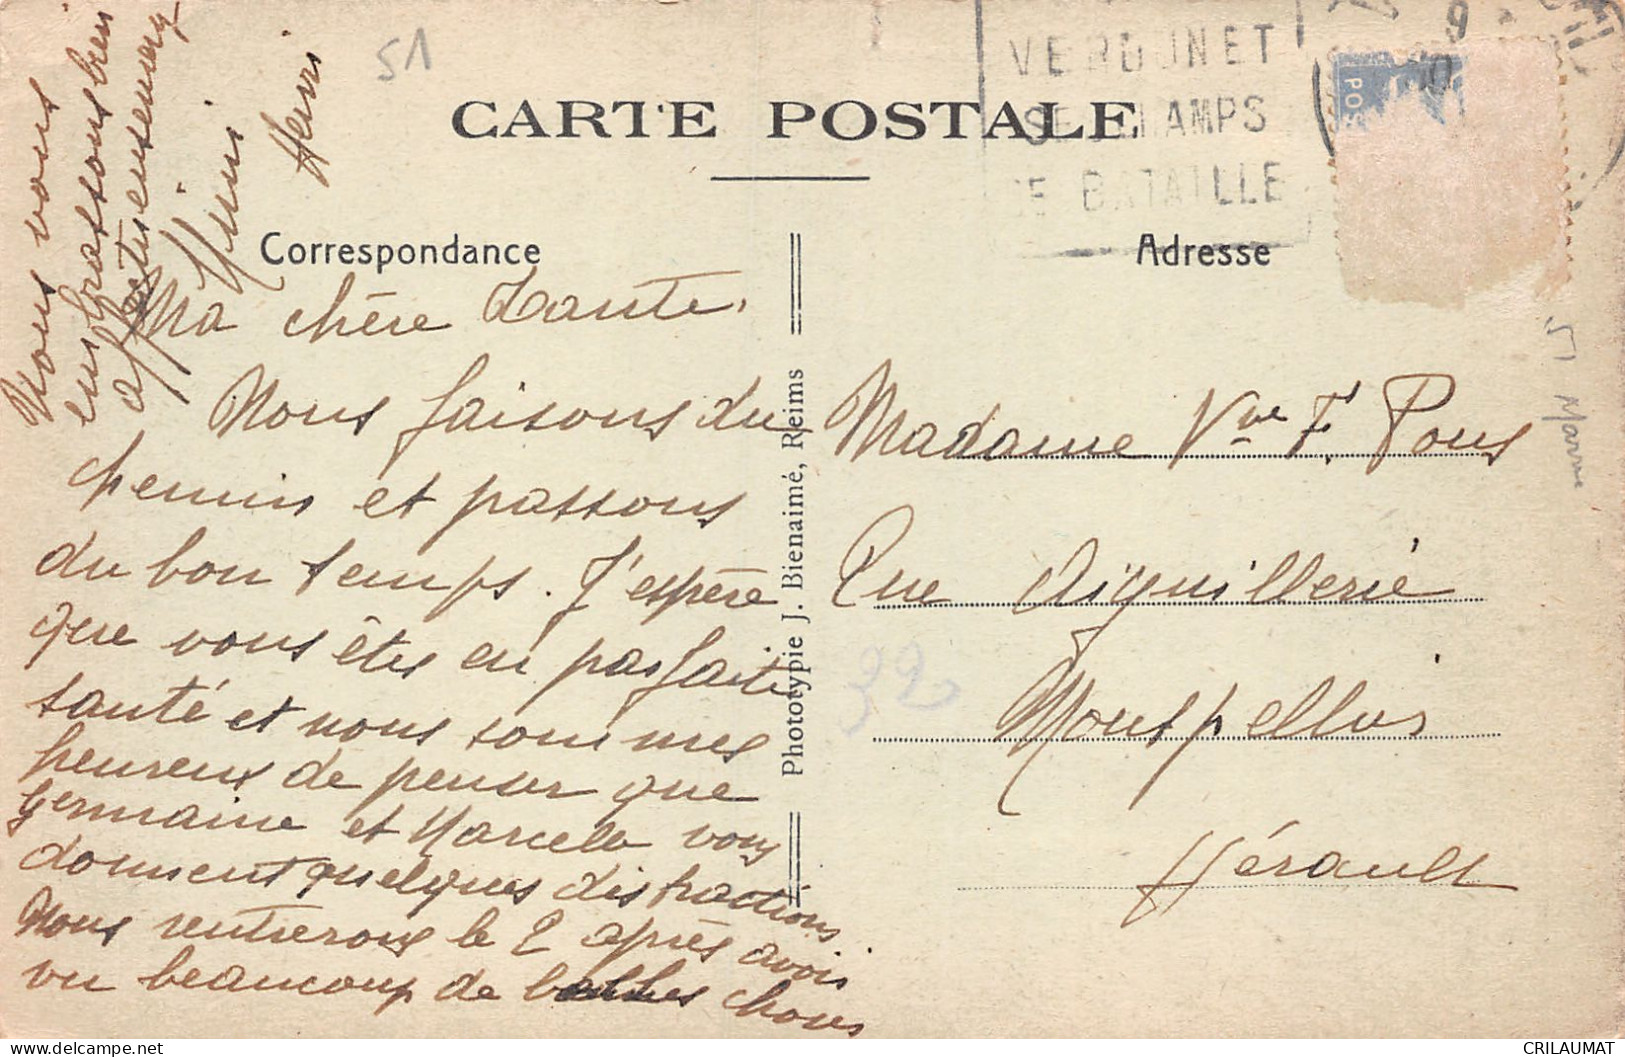 51
CARTE POSTALE
VERDUN ET
SES CHAMPS
DE BATAILLE
9
POS
Correspondance
Adresse
Ma chère Tante,
Nous faisons du
chemin et passons
du bon temps. J'espère
que vous êtes en parfaite
santé et nous sommes
heureux de penser que
Germaine et Marcelle vous
donnent quelques distractions
Nous rentrerons le 2 après avoir
vu beaucoup de belles choses
Nous vous
embrassons bien
affectueusement
Mimi
Henri
Phototypie J. Bienaimé, Reims
Madame Vve F. Pons
Rue Aiguillerie
Montpellier
Hérault
32
51 Marne
CRILAUMAT